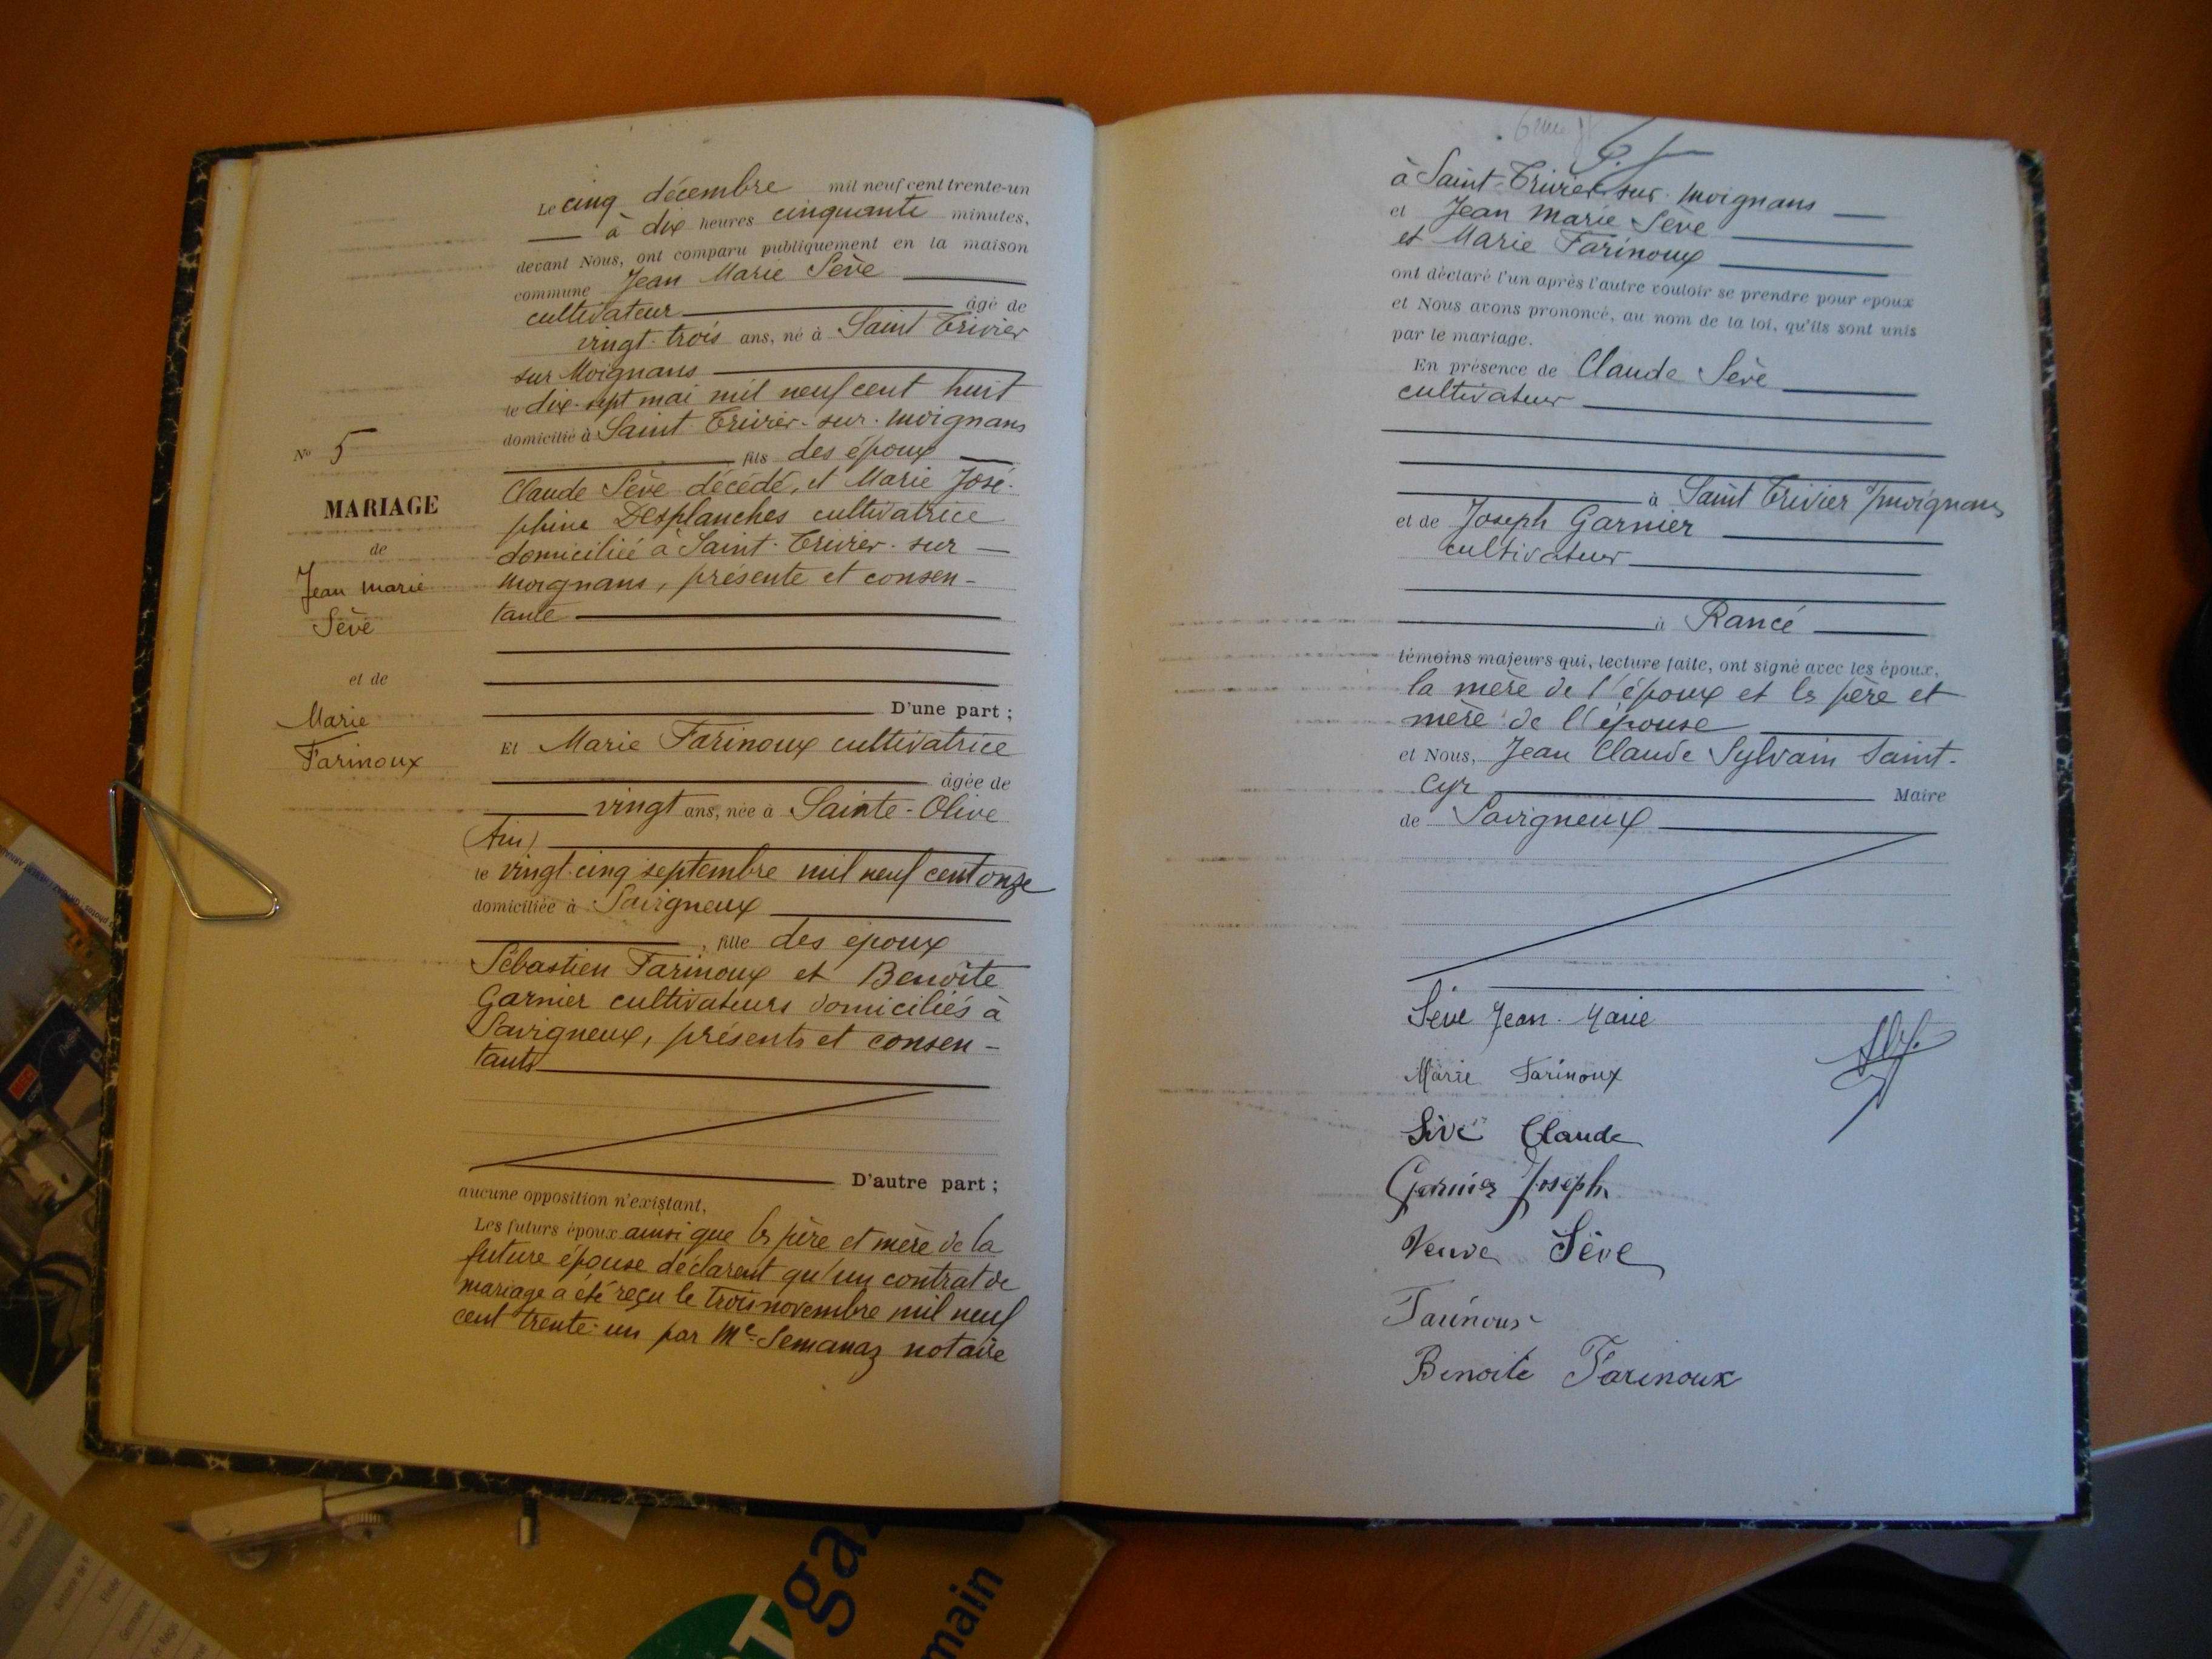 Le cinq décembre mil neuf cent trente-un
à dix heures cinquante minutes,
devant Nous, ont comparu publiquement en la maison
commune Jean Marie Sève
cultivateur âgé de
vingt-trois ans, né à Saint Trivier
sur Moignans
le dix-sept mai mil neuf cent huit
domicilié à Saint-Trivier-sur-Moignans
fils des époux
Claude Sève décédé, et Marie José-
phine Desplanches cultivatrice
domiciliée à Saint-Trivier-sur
Moignans, présente et consen-
tante
D'une part ;
Et Marie Farinoux cultivatrice
âgée de
vingt ans, née à Sainte-Olive
(Ain)
le vingt-cinq septembre mil neuf cent onze
domiciliée à Savigneux
, fille des époux
Sébastien Farinoux et Benoîte
Garnier cultivateurs domiciliés à
Savigneux, présents et consen-
tants
D'autre part ;
aucune opposition n'existant,
Les futurs époux ainsi que les père et mère de la
future épouse déclarent qu'un contrat de
mariage a été reçu le trois novembre mil neuf
cent trente-un par Me Semanaz notaire
No 5
MARIAGE
de
Jean Marie
Sève
et de
Marie
Farinoux
à Saint-Trivier-sur-Moignans
et Jean Marie Sève
et Marie Farinoux
ont déclaré l'un après l'autre vouloir se prendre pour époux
et Nous avons prononcé, au nom de la loi, qu'ils sont unis
par le mariage.
En présence de Claude Sève
cultivateur
à Saint Trivier s/Moignans
et de Joseph Garnier
cultivateur
à Rancé
témoins majeurs qui, lecture faite, ont signé avec les époux,
la mère de l'époux et les père et
mère de l'épouse
et Nous, Jean Claude Sylvain Saint-
Cyr Maire
de Savigneux
Sève Jean-Marie
Marie Farinoux
Sève Claude
Garnier Joseph
Veuve Sève
Farinoux
Benoite Farinoux
ga
main